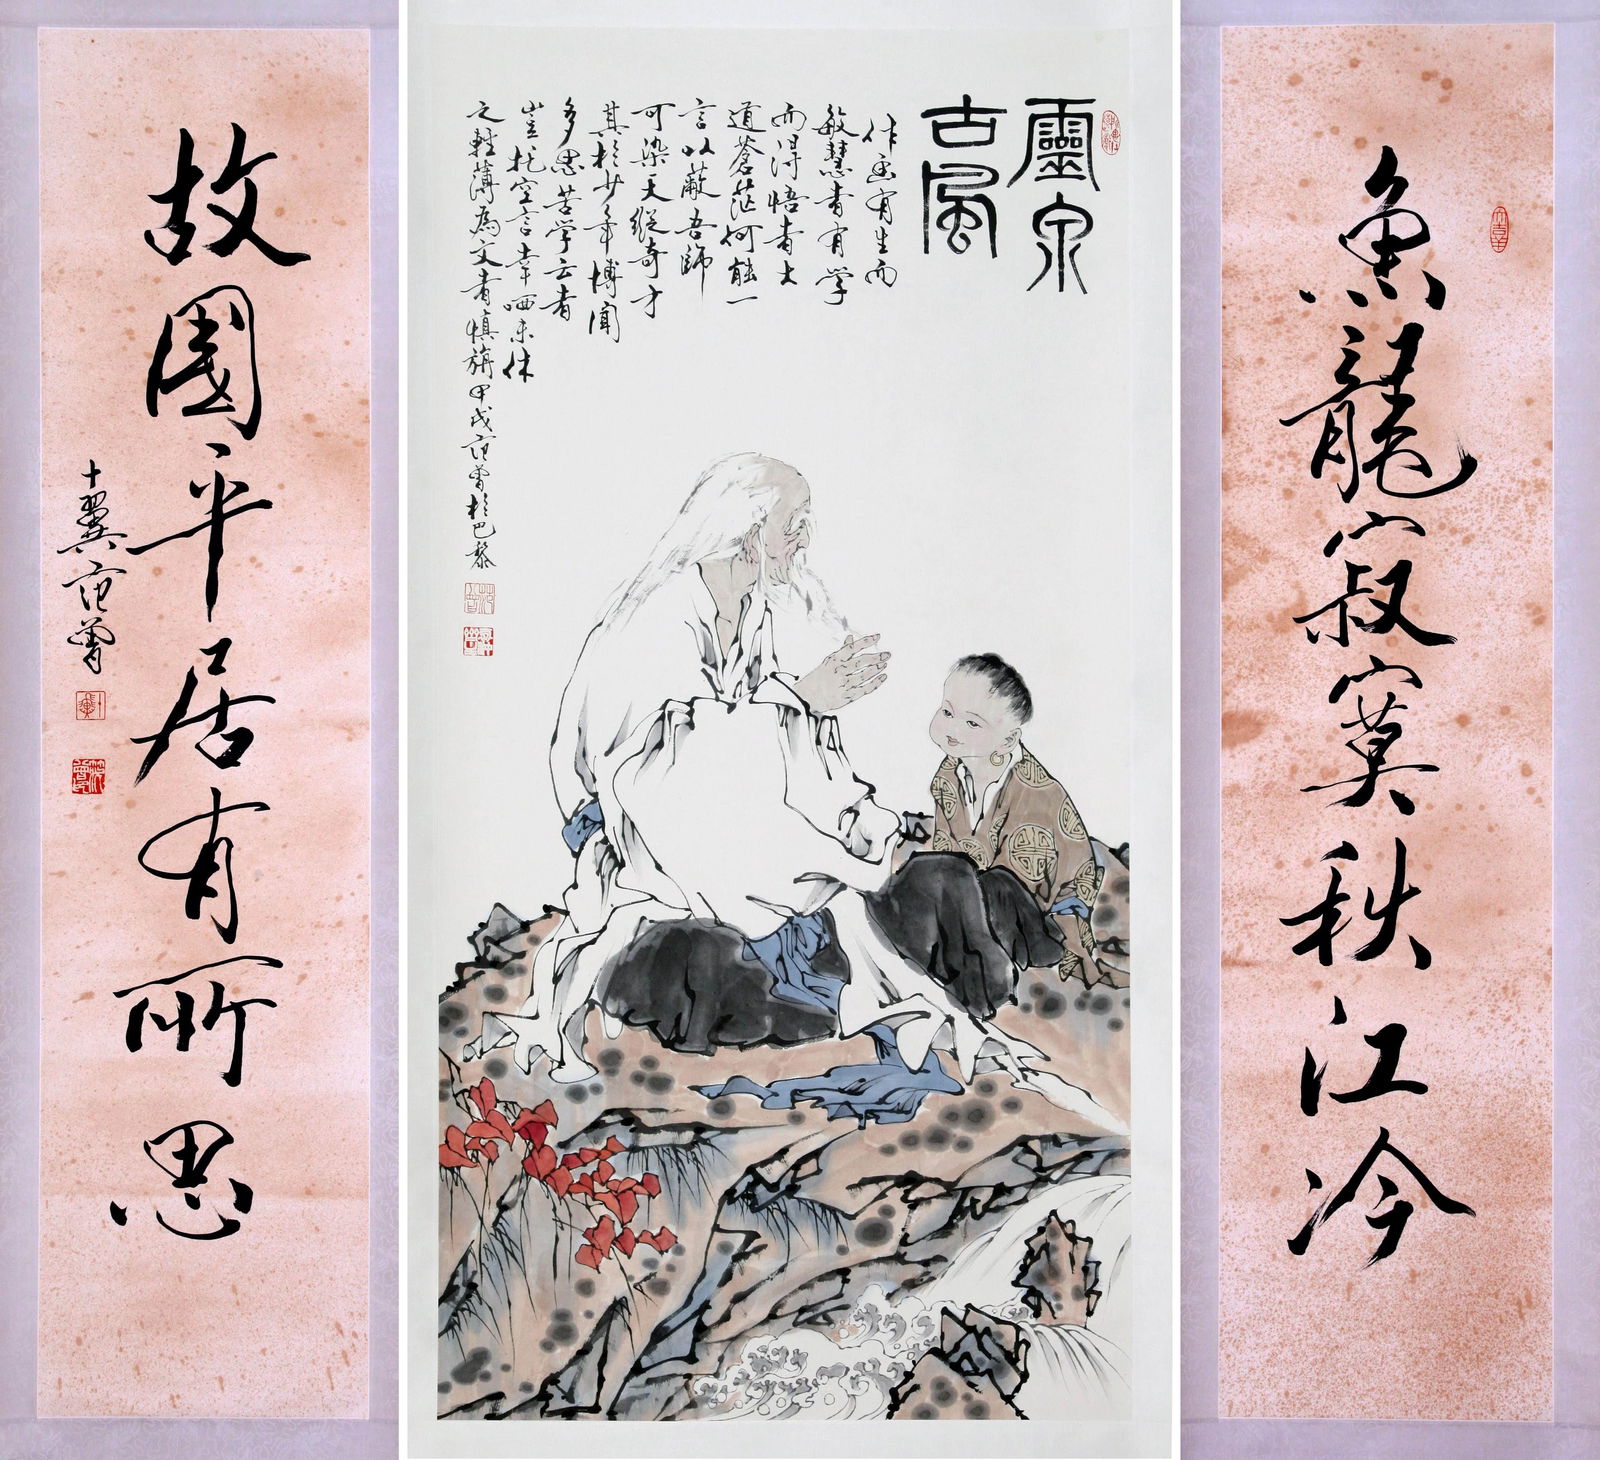 魚龍寂寞秋江冷
靈泉
古風
作畫有生而
敏慧者有学
而得悟者大
道蒼茫何能一
言以蔽吾師
可染天縱奇才
其於少年博聞
多思苦学云者
豈托空言幸哂未休
之輕薄為文者慎旃甲戌范曾於巴黎
故國平居有所思
十翼范曾